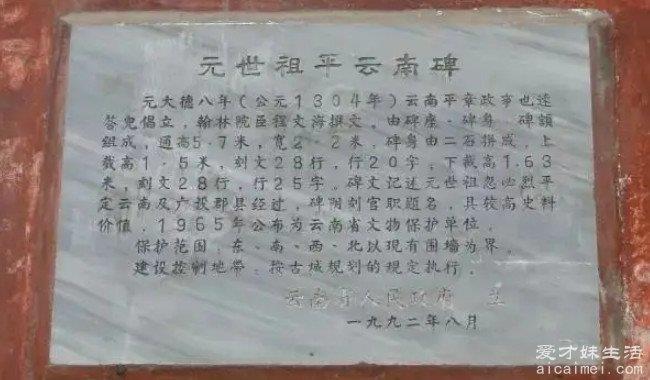 元世祖平云南碑
元大德八年(公元1304年)云南平章政事也速
答儿倡立,翰林院臣程文海撰文。由碑座、碑身、碑额
组成,通高5·7米,宽2·2米,碑身由二石拼成,上
截高1·5米,刻文28行,行20字,下截高1.63
米,刻文28行,行25字。碑文记述元世祖忽必烈平
定云南及广设郡县经过,碑阴刻官职题名,具较高史料
价值,1965年公布为云南省文物保护单位。
保护范围:东、南、西、北以现有围墙为界。
建设控制地带:按古城规划的规定执行。
云南省人民政府 立
一九九二年八月
爱才妹生活
aicaimei.com